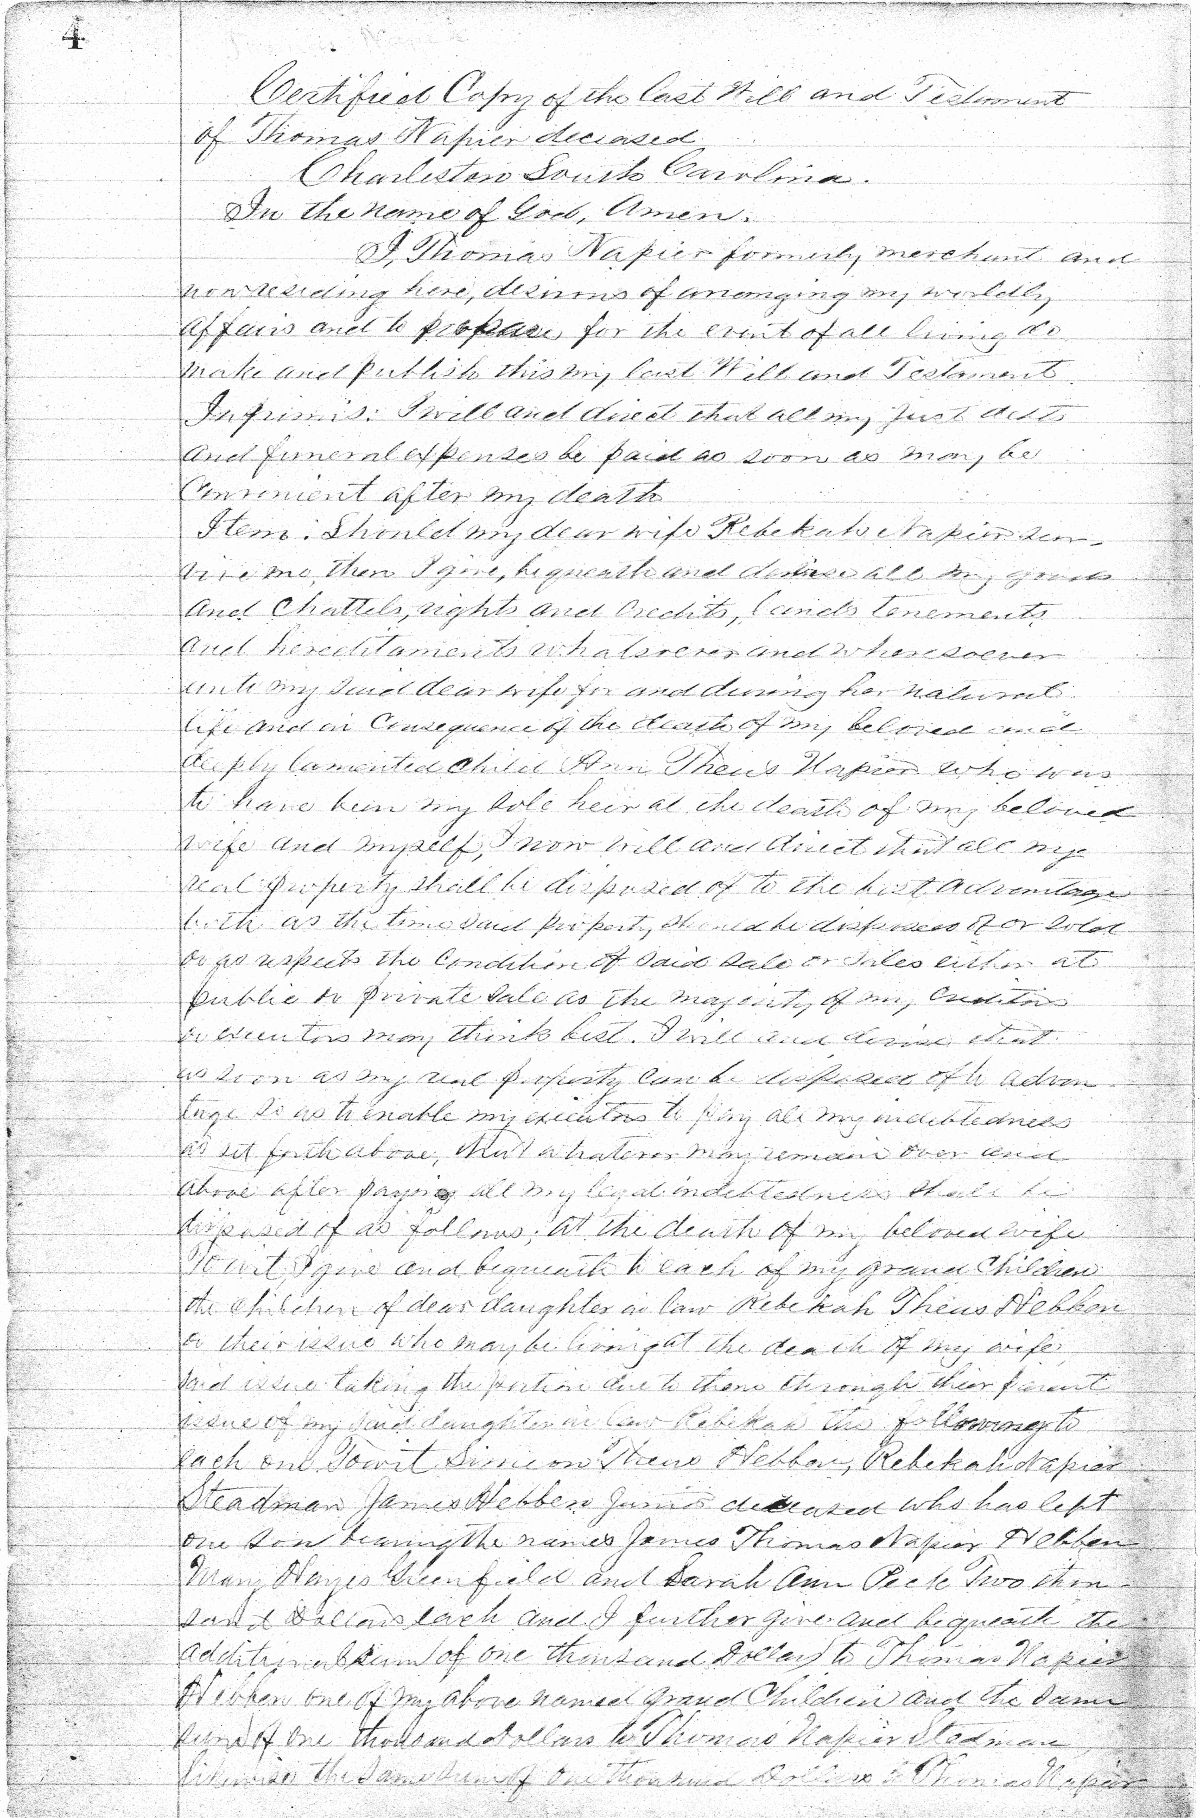 4
Certified Copy of the Last Will and Testament
of Thomas Napier deceased
Charleston South Carolina.
In the name of God, Amen.
I, Thomas Napier formerly merchant and
now residing here, desirous of arranging my worldly
affairs and to prepare for the event of all living do
make and publish this my last Will and Testament.
Inprimis: I will and direct that all my just debts
and funeral expenses be paid as soon as may be
Convenient after my death
Item: Should my dear wife Rebekah Napier sur-
vive me, then I give, bequeath and devise all my goods
and Chattels, rights and Credits, lands tenements
and hereditaments whatsoever and wheresoever
unto my said dear wife for and during her natural
life and in Consequence of the death of my beloved and
deeply lamented Child Ann Theus Napier who was
to have been my sole heir at the death of my beloved
wife and myself, I now will and direct that all my
real property shall be disposed of to the best advantage
both as the time said property should be disposed of or sold
or as respects the Condition of said sale or sales either at
public or private sale as the majority of my Creditors
or executors may think best. I will and devise that
as soon as my real property can be disposed of to advan-
tage so as to enable my executors to pay all my indebtedness
as set forth above, that whatever may remain over and
above after paying all my legal indebtedness shall be
disposed of as follows; at the death of my beloved wife
Towit, I give and bequeath to each of my grand Children
the children of dear daughter in law Rebekah Theus Hebben
or their issue who may be living at the death of my wife,
said issue taking the portion due to them through their parent
issue of my said daughter in law Rebekah the following to
each one Towit Simeon Theus Hebben, Rebekah Napier
Steadman James Hebben Junior deceased who has left
one son bearing the names James Thomas Napier Hebben
Mary Hayes Greenfield and Sarah Ann Peck Two thou-
sand Dollars each and I further give and bequeath the
additional sum of one thousand Dollars to Thomas Napier
Hebben one of my above named grand Children and the same
sum of one thousand Dollars to Thomas Napier Stedman,
likewise the same sum of one thousand Dollars to Thomas Napier